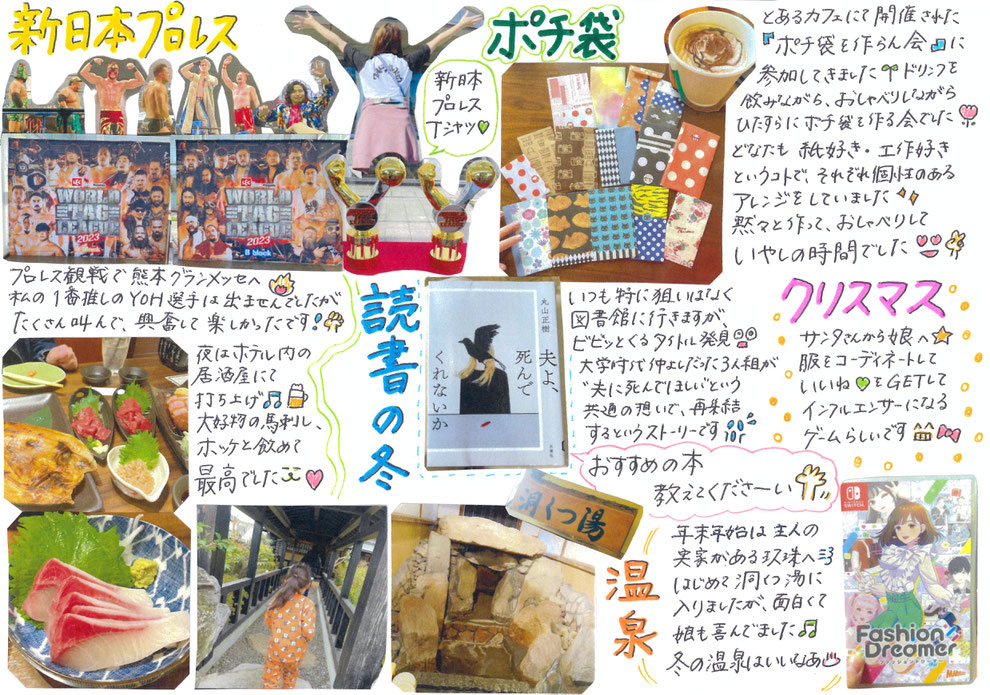 新日本プロレス
新日本
プロレス
Tシャツ
WORLD
TAG
LEAGUE
2023
WORLD
TAG
LEAGUE
2023
B block
プロレス観戦で熊本グランメッセへ
私の1番推しのYOH選手は出ませんでしたが
たくさん叫んで、興奮して楽しかったです!
夜はホテル内の
居酒屋にて
打ち上げ♫
大好物の馬刺し、
ホッケと飲めて
最高でした
ポチ袋
とあるカフェにて開催された
『ポチ袋を作らん会』に
参加してきました ドリンクを
飲みながら、おしゃべりしながら
ひたすらにポチ袋を作る会でした
どなたも紙好き・工作好き
というコトで、それぞれ個性のある
アレンジをしていました
黙々と作って、おしゃべりして
いやしの時間でした
読書の冬
丸山正樹
夫よ、
死んで
くれないか
いつも特に狙いはなく
図書館に行きますが、
ビビッとくるタイトル発見
大学時代仲よしだった3人組が
"夫に死んでほしい"という
共通の想いで、再集結
するというストーリーです
おすすめの本
教えてくださーい
クリスマス
サンタさんから娘へ
服をコーディネートして
いいね♥をGETして
インフルエンサーになる
ゲームらしいです
NINTENDO
SWITCH
Fashion
Dreamer
ファッションドリーマー
洞くつ湯
温泉
年末年始は主人の
実家がある玖珠へ
はじめて洞くつ湯に
入りましたが、面白くて
娘も喜んでました♫
冬の温泉はいいなあ